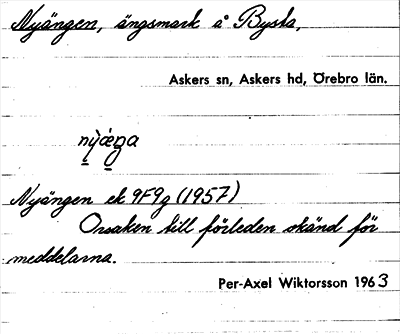 Nyängen, ängsmark å Bysta,
Askers sn, Askers hd, Örebro län.
Nyängen ek 9F9g (1957)
Orsaken till förleden okänd för
meddelarna.
Per-Axel Wiktorsson 1963